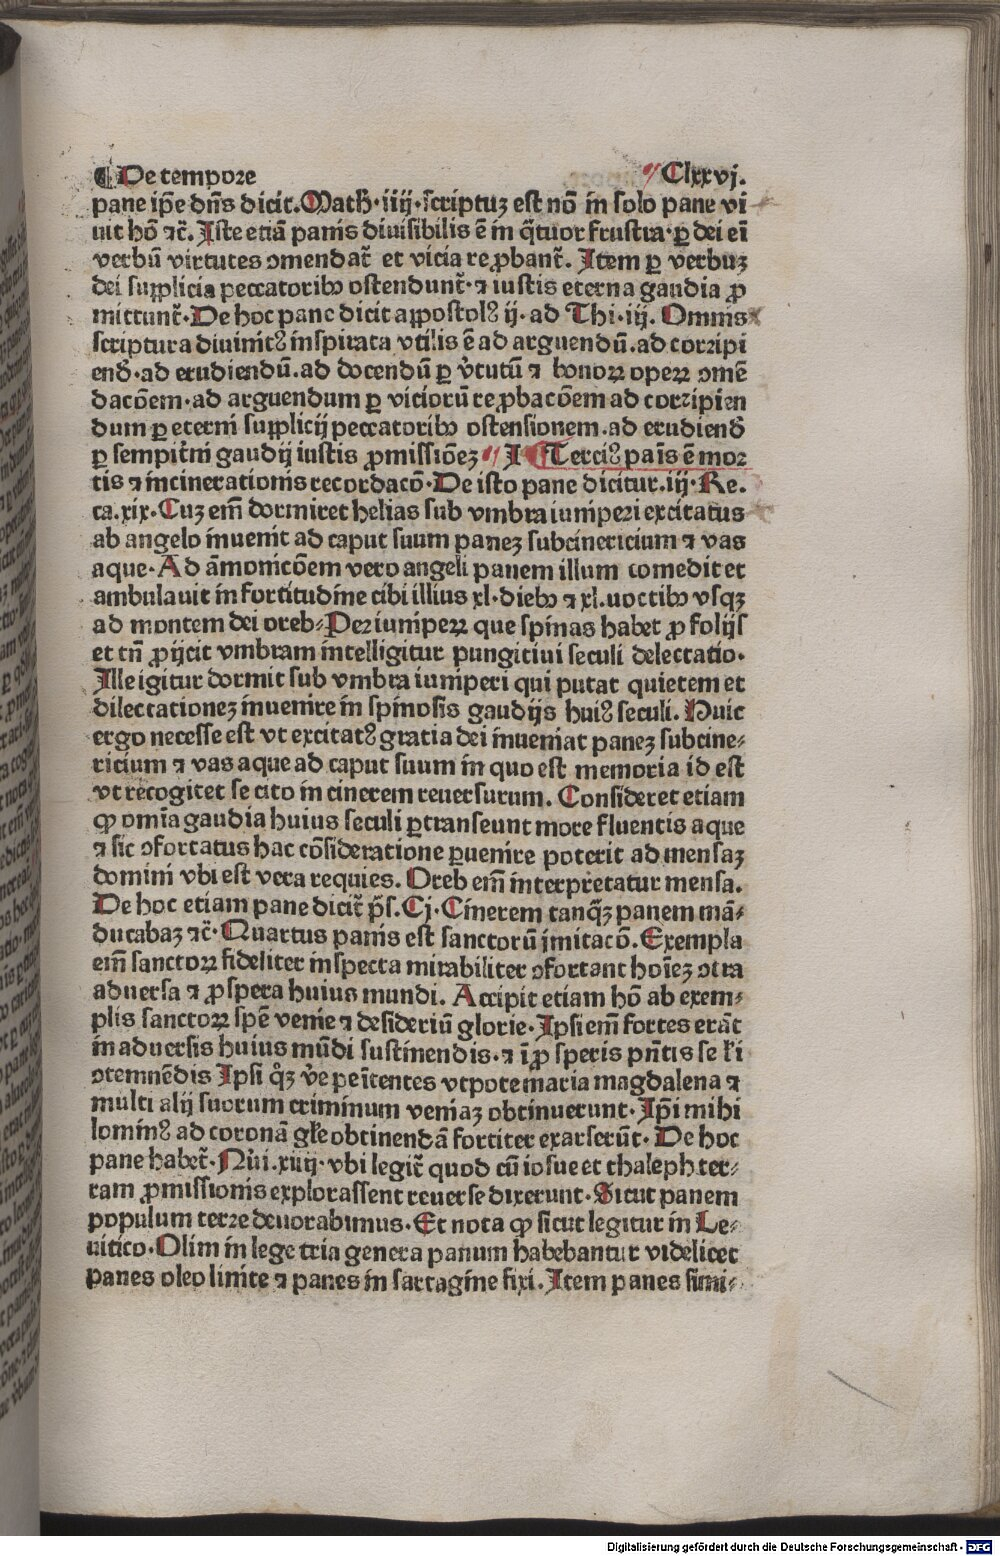 ¶ De tempore Clxxvj.
pane ip̄e dn̄s dicit. Math̄·iiij·scriptuꝫ est nō in solo pane vi
uit hō ⁊c̄. Iste etiā panis diuisibilis ē in q̄tuor frustra·ꝑ dei ei
verbū virtutes ↄmendat̄ et vicia reꝓbant̄. Item ꝑ verbuꝫ
dei supplicia peccatoribꝰ ostendunt̄·⁊ iustis eterna gaudia ꝓ
mittunt̄·De hoc pane dicit appostolꝰ ij·ad Thi·iij. Omnis
scriptura diuinitꝰ inspirata vtilis ē ad arguendū.ad corripi
end̄·ad erudiendū.ad docendū ꝑ v̄tutū ⁊ bonoꝝ opeꝝ ↄmē
dacōem·ad arguendum ꝑ viciorū reꝓbacōem ad corripien
dum ꝑ eterni supplicij peccatoribꝰ ostensionem.ad erudiend̄
ꝑ sempit̄ni gaudij iustis ꝓmissiōeꝫ I Terciꝰ pa̅is ē mor
tis ⁊ incinerationis recordacō·De isto pane dicitur.iij·Re.
ca.xix·Cuꝫ em̄ dormiret helias sub vmbra iuniperi excitatus
ab angelo inuenit ad caput suum paneꝫ subcinericium ⁊ vas
aque·Ad āmonicōem vero angeli panem illum comedit et
ambulauit in fortitudine cibi illius xl·diebꝰ ⁊ xl.uoctibꝰ vsqꝫ
ad montem dei oreb⸗Per iunipeꝝ que spinas habet ꝓ folijs
et tn̄ ꝓijcit vmbram intelligitur pungitiui seculi delectatio·
Ille igitur dormit sub vmbra iuniperi qui putat quietem et
dilectationeꝫ inuenire in spinosis gaudijs huiꝰ seculi. Huic
ergo necesse est vt excitatꝰ gratia dei inueniat paneꝫ subcine⸗
ricium ⁊ vas aque ad caput suum in quo est memoria id est
vt recogitet se cito in cinerem reuersurum. Consideret etiam
ꝙ om̄ia gaudia huius seculi ꝑtranseunt more fluentis aque
⁊ sic ↄfortatus hac cōsideratione ꝑuenire poterit ad mensaꝫ
domini vbi est vera requies. Oreb em̄ interpretatur mensa.
De hoc etiam pane dicit̄ p̄s. Cj·Cinerem tanqꝫ̄ panem mā⸗
ducabaꝫ ⁊c̄·Quartus panis est sanctorū imitacō. Exempla
em̄ sanctoꝝ fideliter inspecta mirabiliter ↄfortant hoīeꝫ ↄtra
aduersa ⁊ ꝓspera huius mundi. Accipit etiam hō ab exem⸗
plis sanctoꝝ spē venie ⁊ desideriū glorie·Ipsi em̄ fortes erāt
in aduersis huius mūdi sustinendis·⁊ i̅ ꝓsperis pn̄tis sec̄li
ↄtemnēdis Ipsi q̊ꝫ v̄e peīitentes vtpote maria magdalena ⁊
multi alij suorum criminum veniaꝫ obtinuerunt·Ip̄i mihi
lominꝰ ad coronā gl̄e obtinendā fortiter exarserūt·De hoc
pane habet̄·Nūi.xiiij·vbi legit̄ quod cū iosue et chaleph ter⸗
ram ꝓmissionis explorassent reuerse dixerunt·Sicut panem
populum terre deuorabimus·Et nota ꝙ sicut legitur in Le⸗
uitico·Olim in lege tria genera panum habebantur videlicet
panes oleo linite ⁊ panes in sartagine fixi. Item panes simi⸗
Digitalisierung gefördert durch die Deutsche Forschungsgemeinschaft - DFG